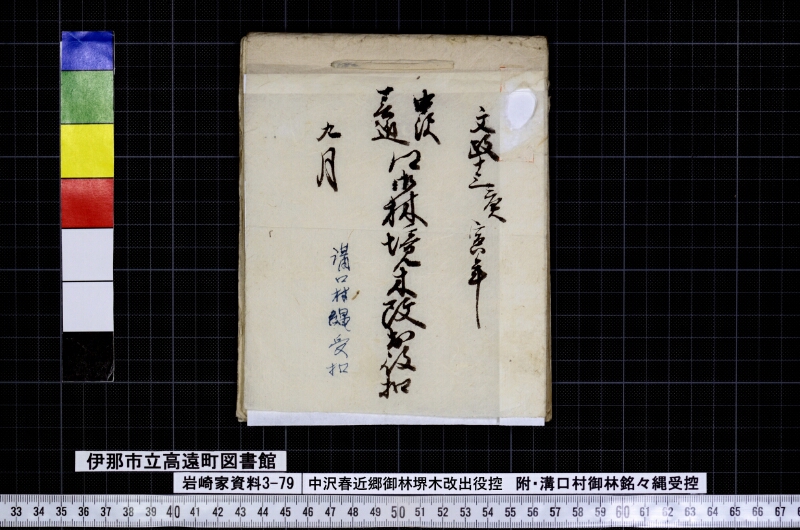 文政十三庚寅年
中沢
春近
口御林境木改出役扣
九月
溝口村縄受扣
伊那市立高遠町図書館
岩崎家資料3-79 中沢春近郷御林堺木改出役控 附・溝口村御林銘々縄受控
33 34 35 36 37 38 39 40 41 42 43 44 45 46 47 48 49 50 51 52 53 54 55 56 57 58 59 60 61 62 63 64 65 66 67